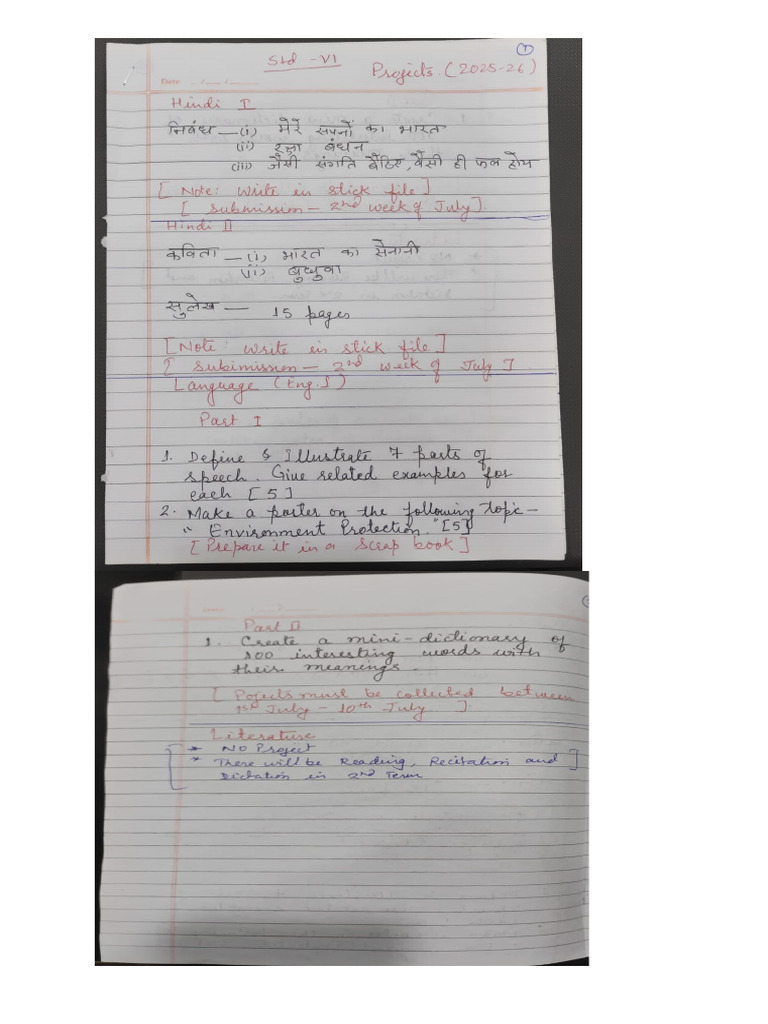 1
Std - VI
Projects. (2025-26)
Date
Hindi I
निबंध — (i) मेरे सपनों का भारत
(ii) रक्षा बंधन
(iii) जैसी संगति बैठिए, वैसी ही फल होय
[ Note: Write in stick file ]
[ Submission - 2nd week of July]
Hindi II
कविता — (i) भारत का सेनानी
(ii) बुधुवा
सुलेख — 15 pages
[Note Write in stick file ]
[ Subimission - 2nd week of July ]
Language (Eng. I)
Part I
1. Define & Illustrate 7 parts of
speech. Give related examples for
each [5]
2. Make a poster on the following topic -
" Environment Protection." [5]
[ Prepare it in a Scrap book ]
Part II
1. Create a mini-dictionary of
100 interesting words with
their meanings.
[ Pojects must be collected between
1st July - 10th July ].
Literature
* No Project
* There will be Reading, Recitation and
Dictation in 2nd Term